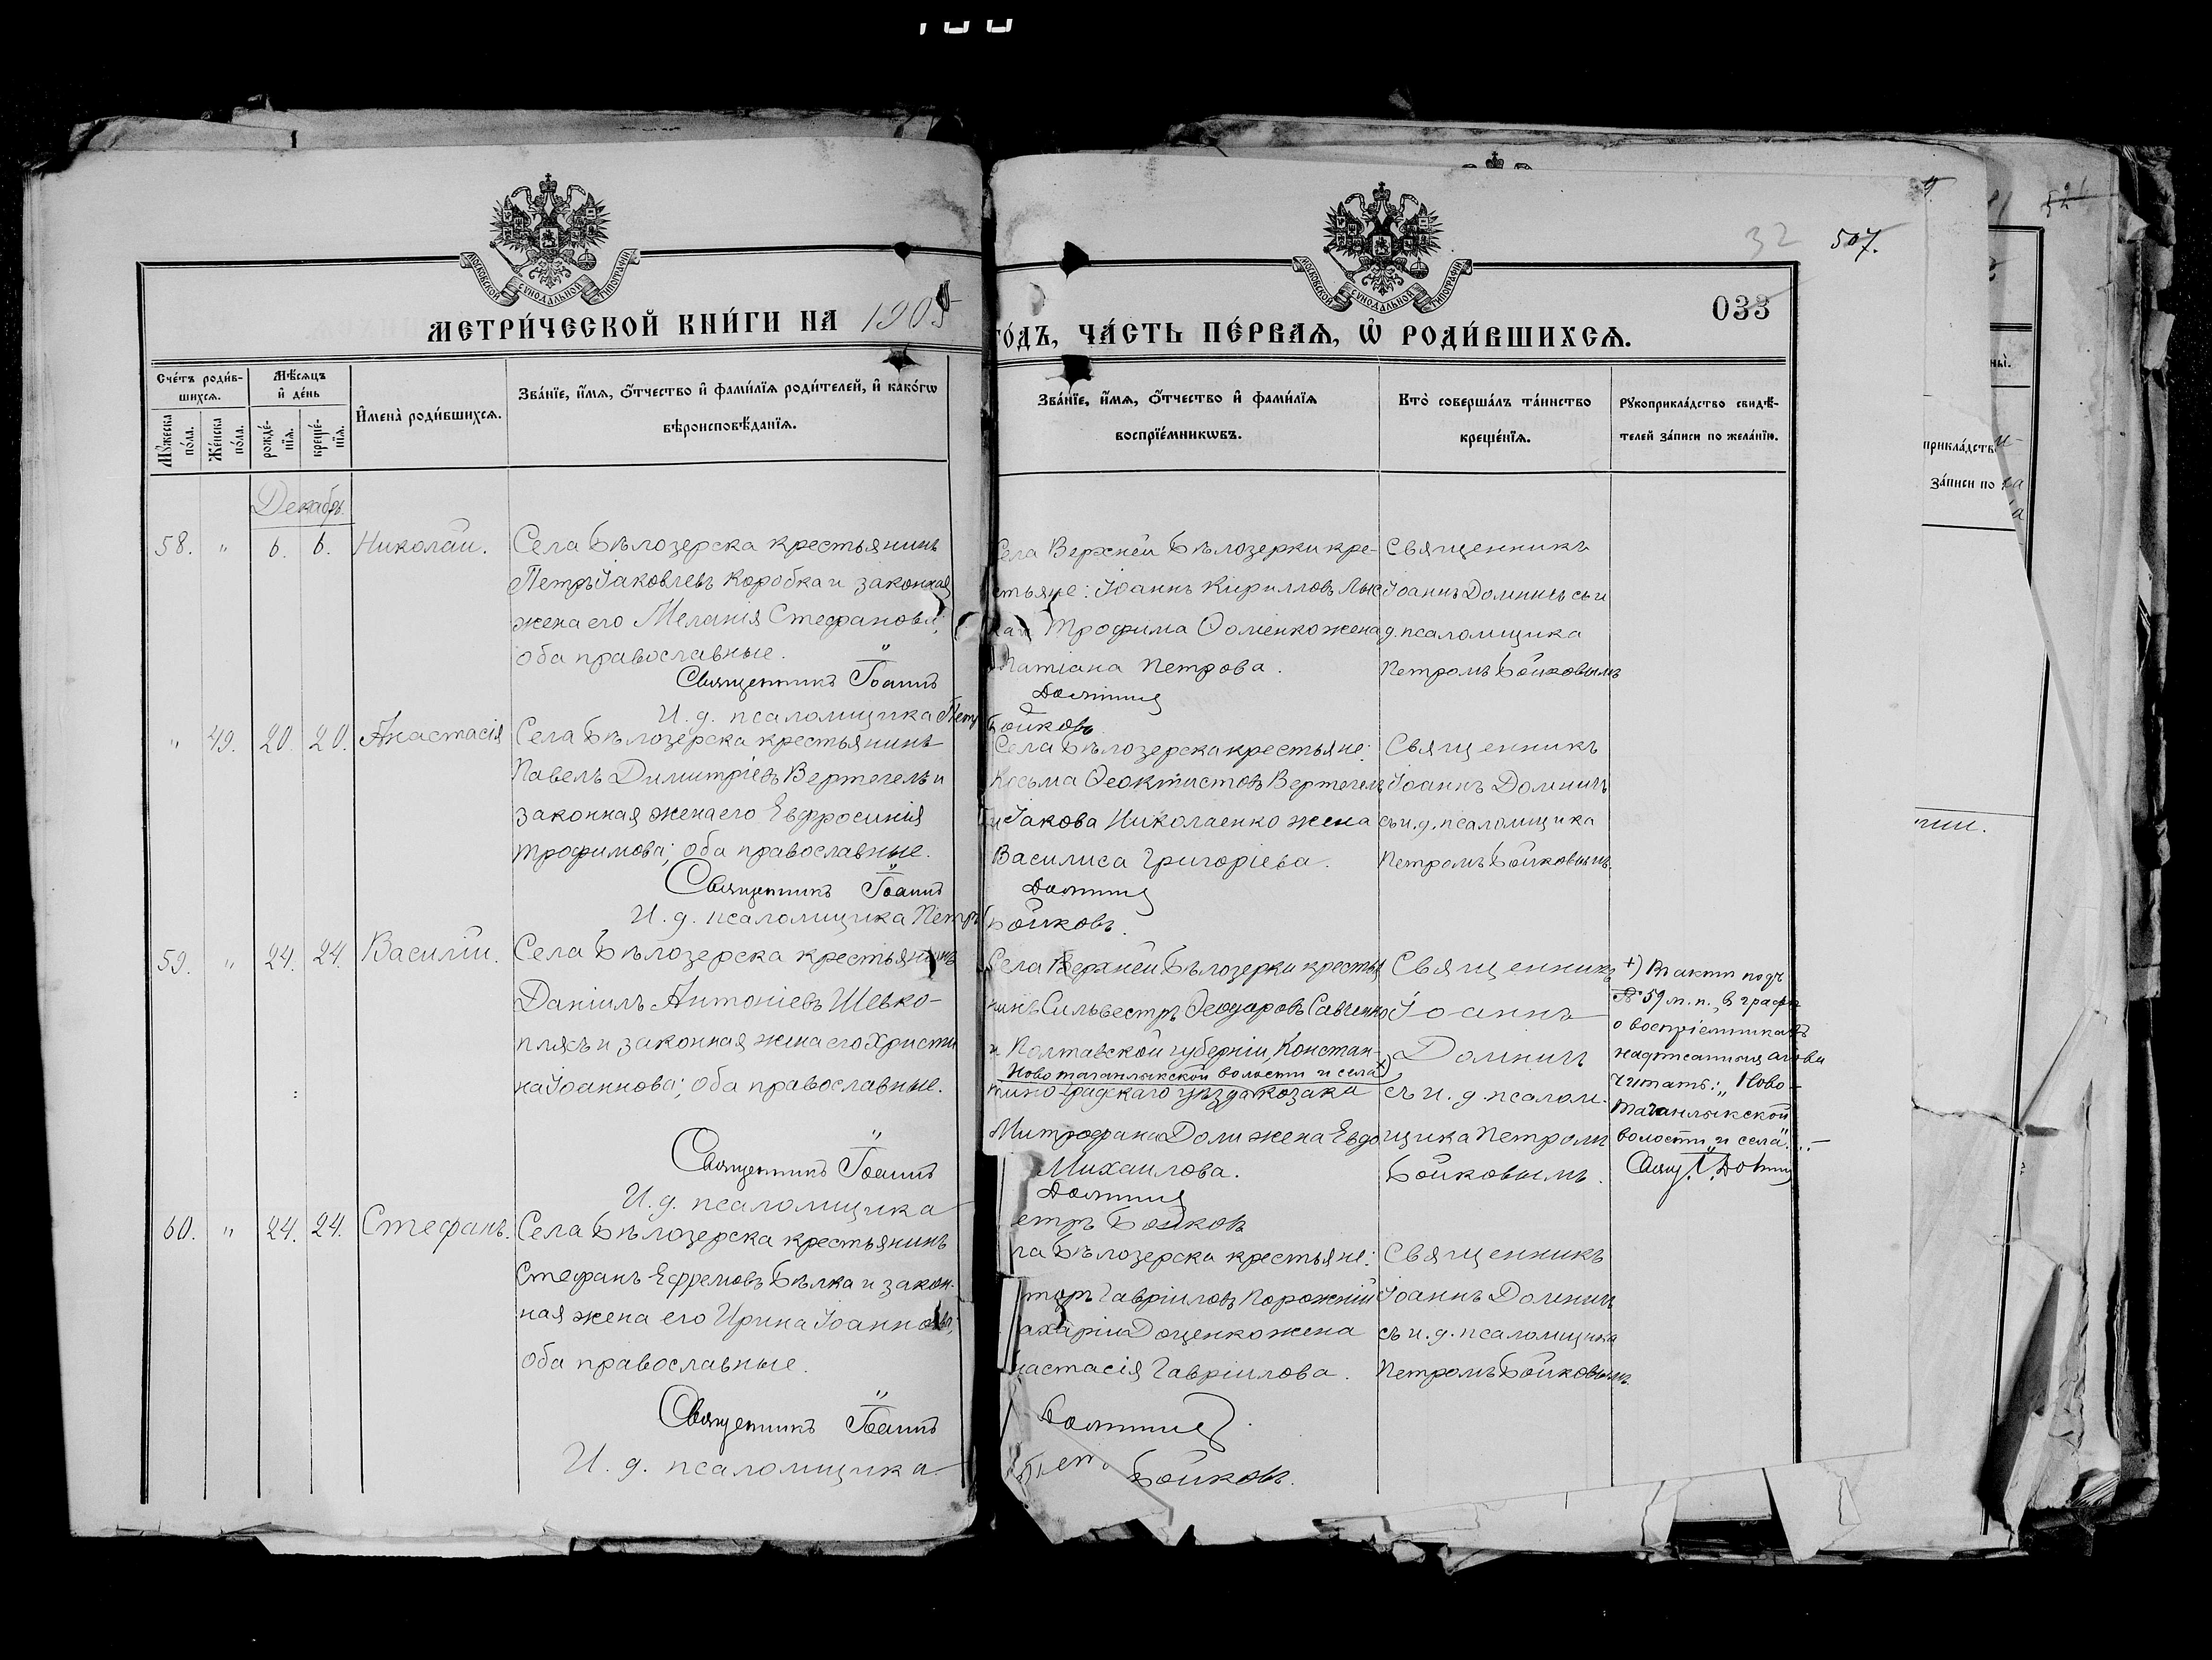 32
507.
033
МЕТРИ́ЧЕСКОЙ КНИ́ГИ НА 1905
ГО́ДЪ, ЧА́СТЬ ПЕ́РВАѦ, Ѡ҆ РОДИ́ВШИХСѦ.
Сче́тъ роди́в-
шихсѧ.
Мѣ́сѧцъ
и҆ де́нь
Мꙋ́жеска по́ла.
Же́нска по́ла.
рожде́-
нїѧ.
креще́-
нїѧ.
И҆мена̀ роди́вшихсѧ.
Зва́нїе, и҆́мѧ, ѻ҆́тчество и҆ фами́лїѧ роди́телей, и҆ како́гѡ
вѣроисповѣ́данїѧ.
Зва́нїе, и҆́мѧ, ѻ҆́тчество и҆ фами́лїѧ
воспрїе́мникѡвъ.
Кто̀ соверша́лъ та́инство
креще́нїѧ.
Рꙋкоприкла́дство свидѣ́-
телей за́писи по жела́нїю.
Декабрь.
58. " 6. 6. Николай.
Села Бѣлозерска крестьянинъ
Петръ Іаковлевъ Коробка и законная
жена его Меланія Стефанова;
оба православные.
Священникъ Іоаннъ
И. д. псаломщика Петръ
Села Верхней Бѣлозерки кре-
стьяне: Іоаннъ Кирилловъ
Трофима Фоменко жена
Татіана Петрова.
Домнич
Бойковъ.
Священникъ
Іоаннъ Домничъ съ и
д. псаломщика
Петромъ Бойковымъ
" 49. 20. 20. Анастасія
Села Бѣлозерска крестьянинъ
Павелъ Димитріевъ Вертегелъ и
законная жена его Евфросинія
Трофимова; оба православные.
Священникъ Іоаннъ
И. д. псаломщика Петръ
Села Бѣлозерска крестьяне:
Косьма Ѳеоктистовъ Вертегелъ
и Іакова Николаенко жена
Василиса Григоріева.
Домнич
Бойковъ.
Священникъ
Іоаннъ Домничъ
съ и. д. псаломщика
Петромъ Бойковымъ.
59. " 24. 24. Василій.
Села Бѣлозерска крестьянинъ
Даніилъ Антоніевъ Шевко-
плясъ и законная жена его Христи
на Іоаннова; оба православные.
Священникъ Іоаннъ
И. д. псаломщика
Села Верхней Бѣлозерки крестья
нинъ Сильвестръ Ѳеодоровъ Савченко
и Полтавской губерніи, Констан-
Ново таганлыкской волости и села +)
тино-градскаго уѣзда козака
Митрофана Доли жена Евдо
Михаилова.
Домнич
етръ Бойковъ
Священникъ
Іоаннъ
Домничъ
съ и. д. псалом-
щика Петромъ
Бойковымъ.
+) Въ актѣ подъ
№ 59 м. п., въ графѣ
о воспріемникахъ
надписанныя слова
читать: "Ново-
таганлыкской
волости и села".
Свящ. І. Домнич
60. " 24. 24. Стефанъ.
Села Бѣлозерска крестьянинъ
Стефанъ Ефремовъ Бѣлка и закон-
ная жена его Ирина Іоаннова;
оба православные.
Священникъ Іоаннъ
И. д. псаломщика
ла Бѣлозерска крестьяне:
торъ Гавріиловъ Порожній
ахаріи Доценко жена
настасія Гавріилова.
Домнич.
Пет Бойковъ.
Священникъ
Іоаннъ Домничъ
съ и. д. псаломщика
Петромъ Бойковымъ.